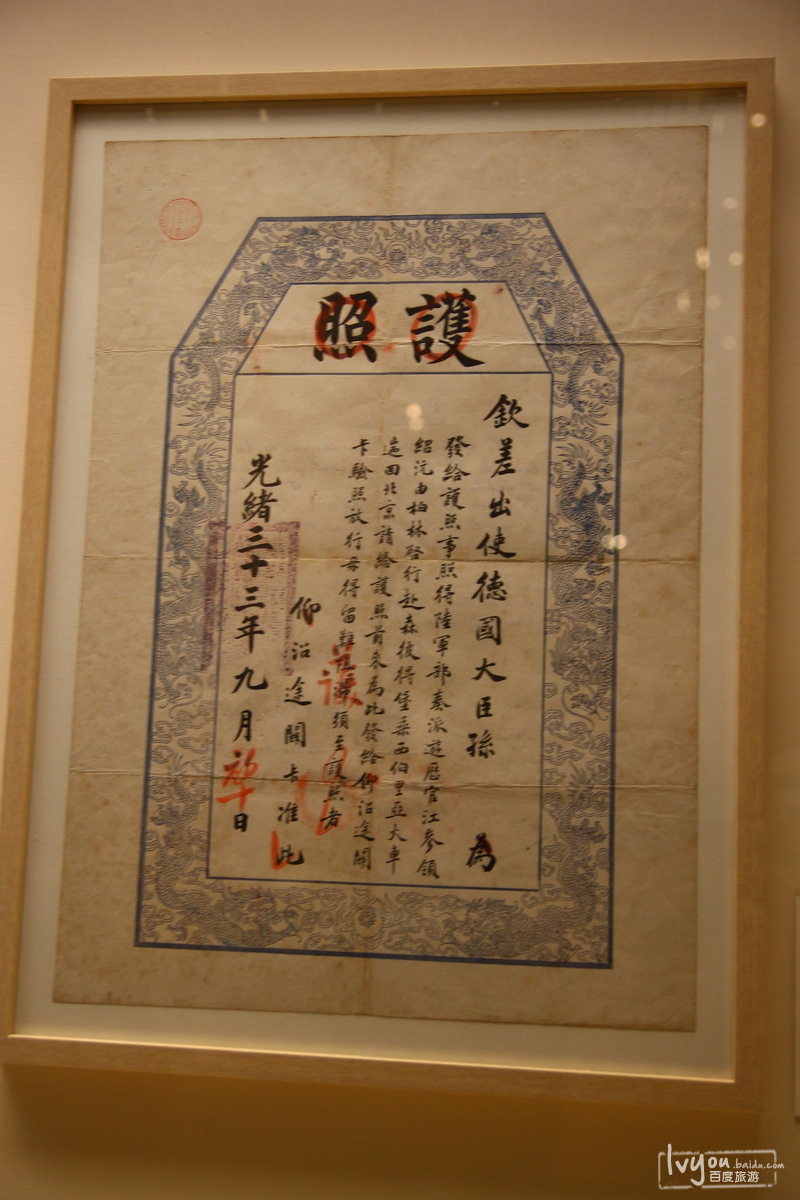 護照
欽差出使德國大臣孫 為
發給護照事照得陸軍部奏派遊歷官江參領
紹沅由柏林啓行赴森彼得堡乘西伯里亞大車
造回北京請給護照前來為此發給仰沿途關
卡驗照放行毋得留難 須至護照者
仰沿途關卡准此
光緒三十三年九月初十日
lvyou.baidu.com
百度旅游